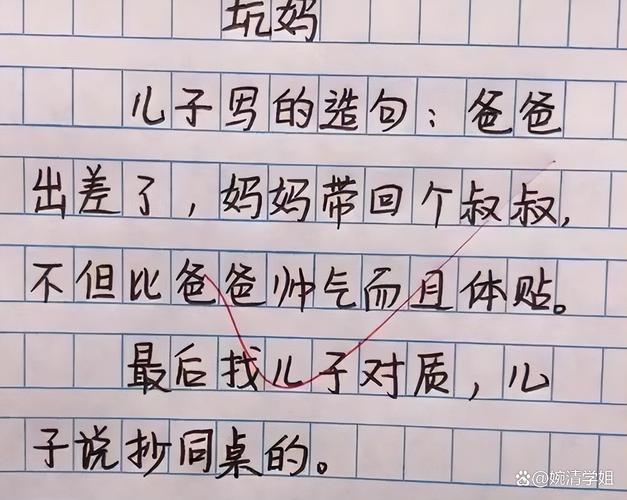 坑妈
儿子写的造句：爸爸
出差了，妈妈带回个叔叔，
不但比爸爸帅气而且体贴。
最后找儿子对质，儿
子说抄同桌的。
@婉清学姐